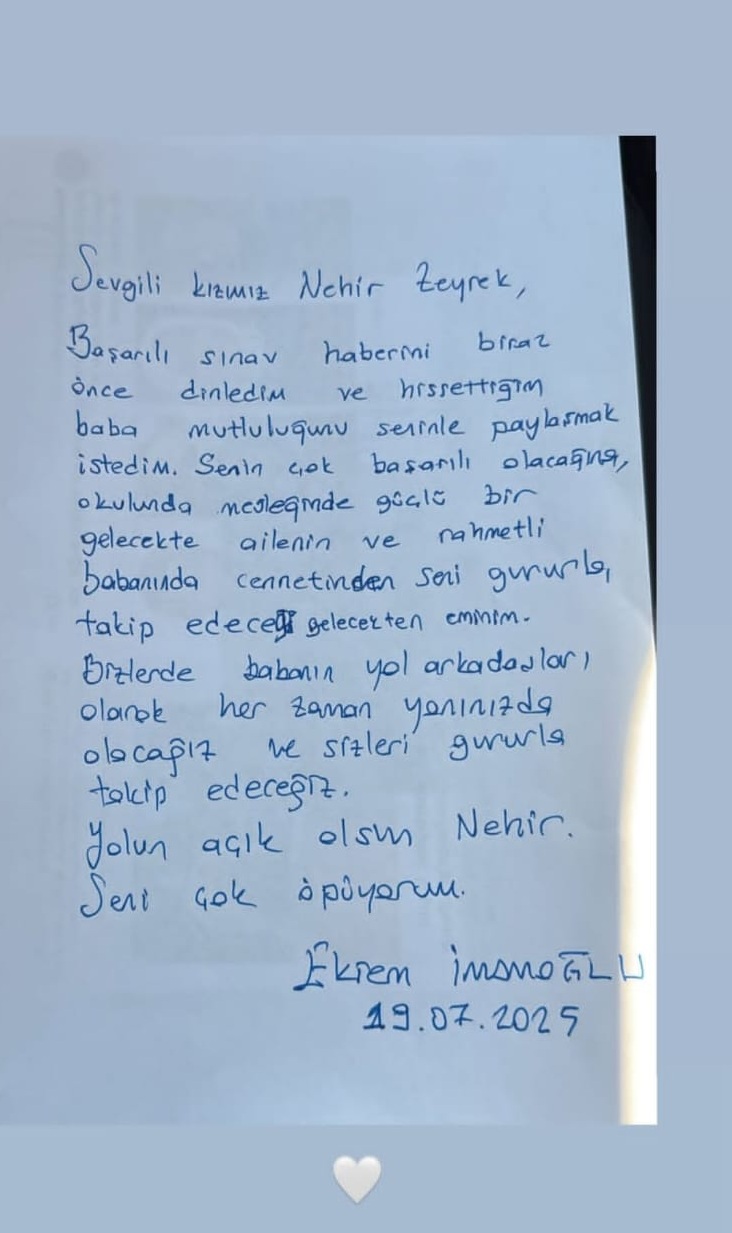 Sevgili kızmız Nehir Zeyrek,
Başarılı sınav haberini biraz
önce dinledim ve hissettiğim
baba mutluluğunu seninle paylaşmak
istedim. Senin çok başarılı olacağına,
okulunda mesleğinde güçlü bir
gelecekte ailenin ve rahmetli
babanında cennetinden seni gururla,
takip edeceği gelecekten eminim.
Bizlerde babanın yol arkadaşları
olarak her zaman yanınızda
olacağız ve sizleri gururla
takip edeceğiz.
Yolun açık olsun Nehir.
Seni çok öpüyorum.
Ekrem İmamoĞLU
19.07.2025